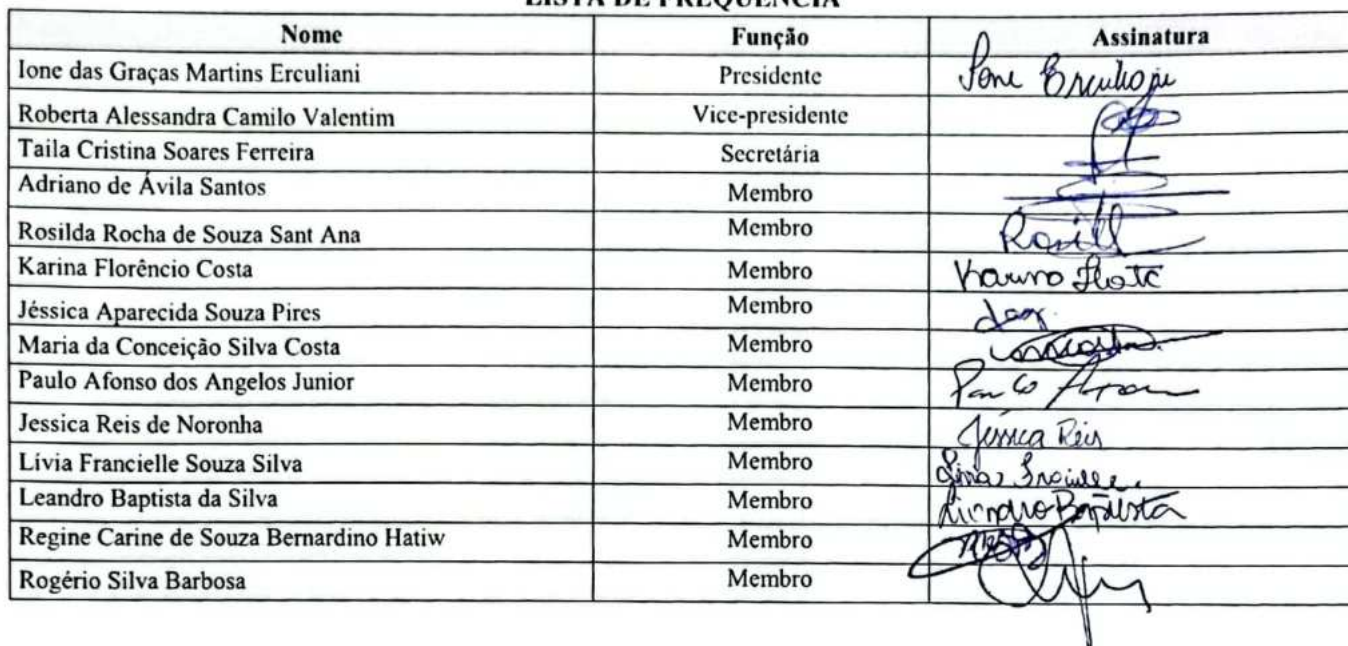 LISTA DE FREQUÊNCIA
Nome Função Assinatura
Ione das Graças Martins Erculiani Presidente Ione Erculiani
Roberta Alessandra Camilo Valentim Vice-presidente
Taila Cristina Soares Ferreira Secretária
Adriano de Ávila Santos Membro
Rosilda Rocha de Souza Sant Ana Membro
Karina Florêncio Costa Membro
Jéssica Aparecida Souza Pires Membro
Maria da Conceição Silva Costa Membro
Paulo Afonso dos Angelos Junior Membro
Jessica Reis de Noronha Membro Jéssica Reis
Lívia Francielle Souza Silva Membro
Leandro Baptista da Silva Membro Leandro Baptista
Regine Carine de Souza Bernardino Hatiw Membro
Rogério Silva Barbosa Membro